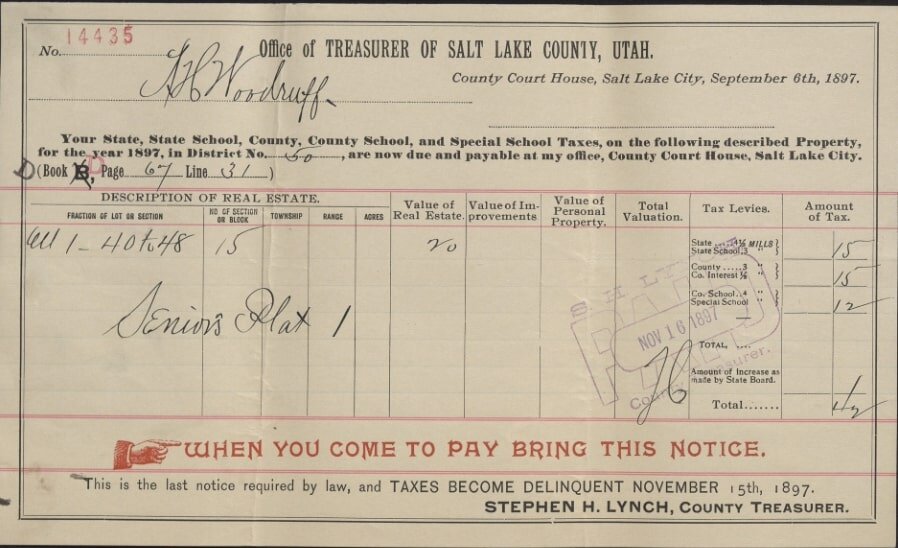 No. 14435
Office of TREASURER OF SALT LAKE COUNTY, UTAH.
A H Woodruff
County Court House, Salt Lake City, September 6th, 1897.
Your State, State School, County, County School, and Special School Taxes, on the following described Property,
for the year 1897, in District No. 50, are now due and payable at my office, County Court House, Salt Lake City.
D (Book B, D Page 67 Line 31)
DESCRIPTION OF REAL ESTATE.
FRACTION OF LOT OR SECTION
NO OF SECTION OR BLOCK
TOWNSHIP
RANGE
ACRES
Value of Real Estate.
Value of Improvements
Value of Personal Property.
Total Valuation.
Tax Levies.
Amount of Tax.
All 1 - 40 to 48 15 20
State ... 4½ MILLS
State School. 3 "
15
County ..... 3 "
Co. Interest ½ "
15
Co. School.. 4 "
Special School "
12
Seniors Plat 1
S. H. LYNCH
PAID
NOV 16 1897
County Treasurer.
TOTAL. ...
Amount of Increase as
made by State Board.
1
Total.......
WHEN YOU COME TO PAY BRING THIS NOTICE.
This is the last notice required by law, and TAXES BECOME DELINQUENT NOVEMBER 15th, 1897.
STEPHEN H. LYNCH, COUNTY TREASURER.